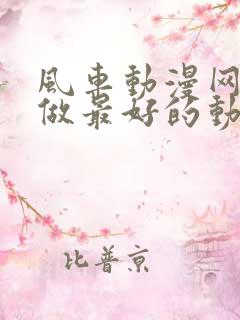 風車動漫网
做最好的動
比普京